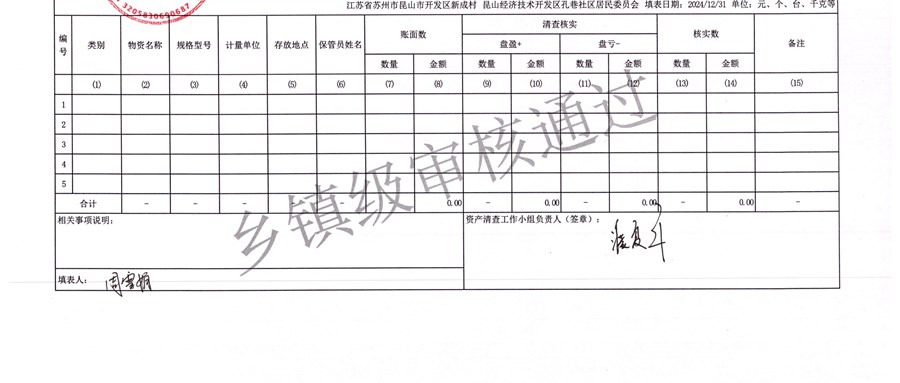 3205830690687
江苏省苏州市昆山市开发区新成村 昆山经济技术开发区孔巷社区居民委员会 填表日期：2024/12/31 单位：元、个、台、千克等
编号 类别 物资名称 规格型号 计量单位 存放地点 保管员姓名 账面数 清查核实 核实数 备注
盘盈+ 盘亏-
数量 金额 数量 金额 数量 金额 数量 金额
(1) (2) (3) (4) (5) (6) (7) (8) (9) (10) (11) (12) (13) (14) (15)
1
2
3
4
5
合计 - - - - - - 0.00 - 0.00 - 0.00 - 0.00 -
相关事项说明：
资产清查工作小组负责人（签章）：
填表人：周雪娟
乡镇级审核通过